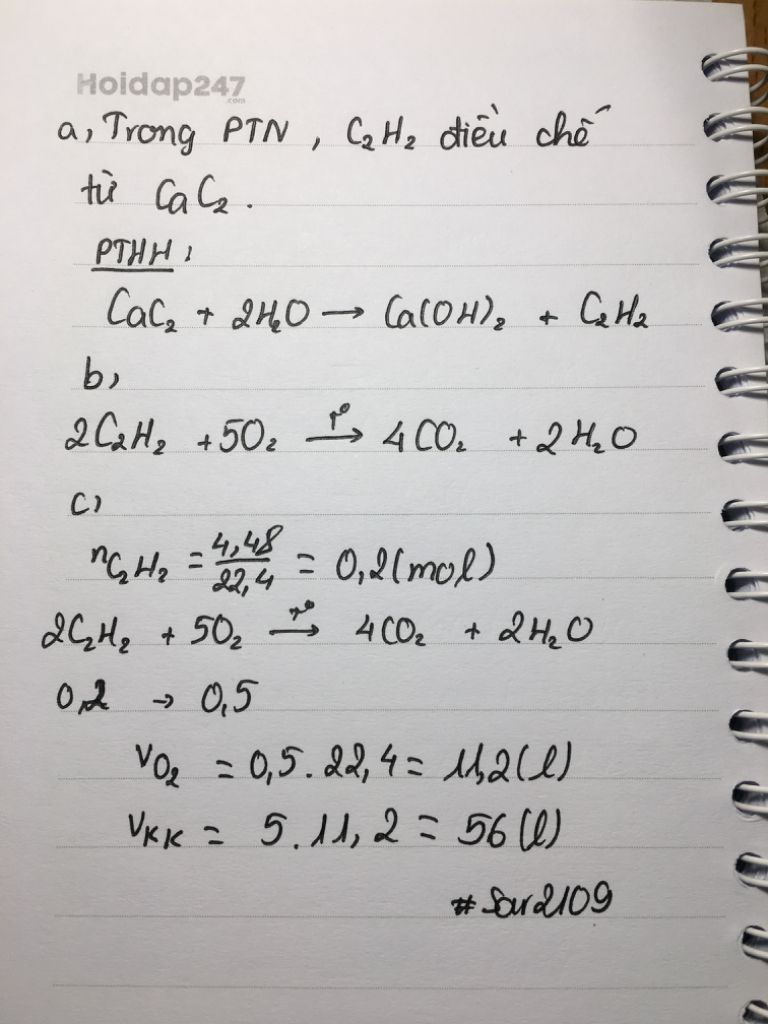 Hoidap247
.com
a, Trong PTN, C₂H₂ điều chế
từ CaC₂.
PTHH:
CaC₂ + 2H₂O → Ca(OH)₂ + C₂H₂
b,
2C₂H₂ + 5O₂ —t°→ 4CO₂ + 2H₂O
c,
nC₂H₂ = 4,48/22,4 = 0,2(mol)
2C₂H₂ + 5O₂ —t°→ 4CO₂ + 2H₂O
0,2 → 0,5
VO₂ = 0,5.22,4 = 11,2(l)
VKK = 5.11,2 = 56(l)